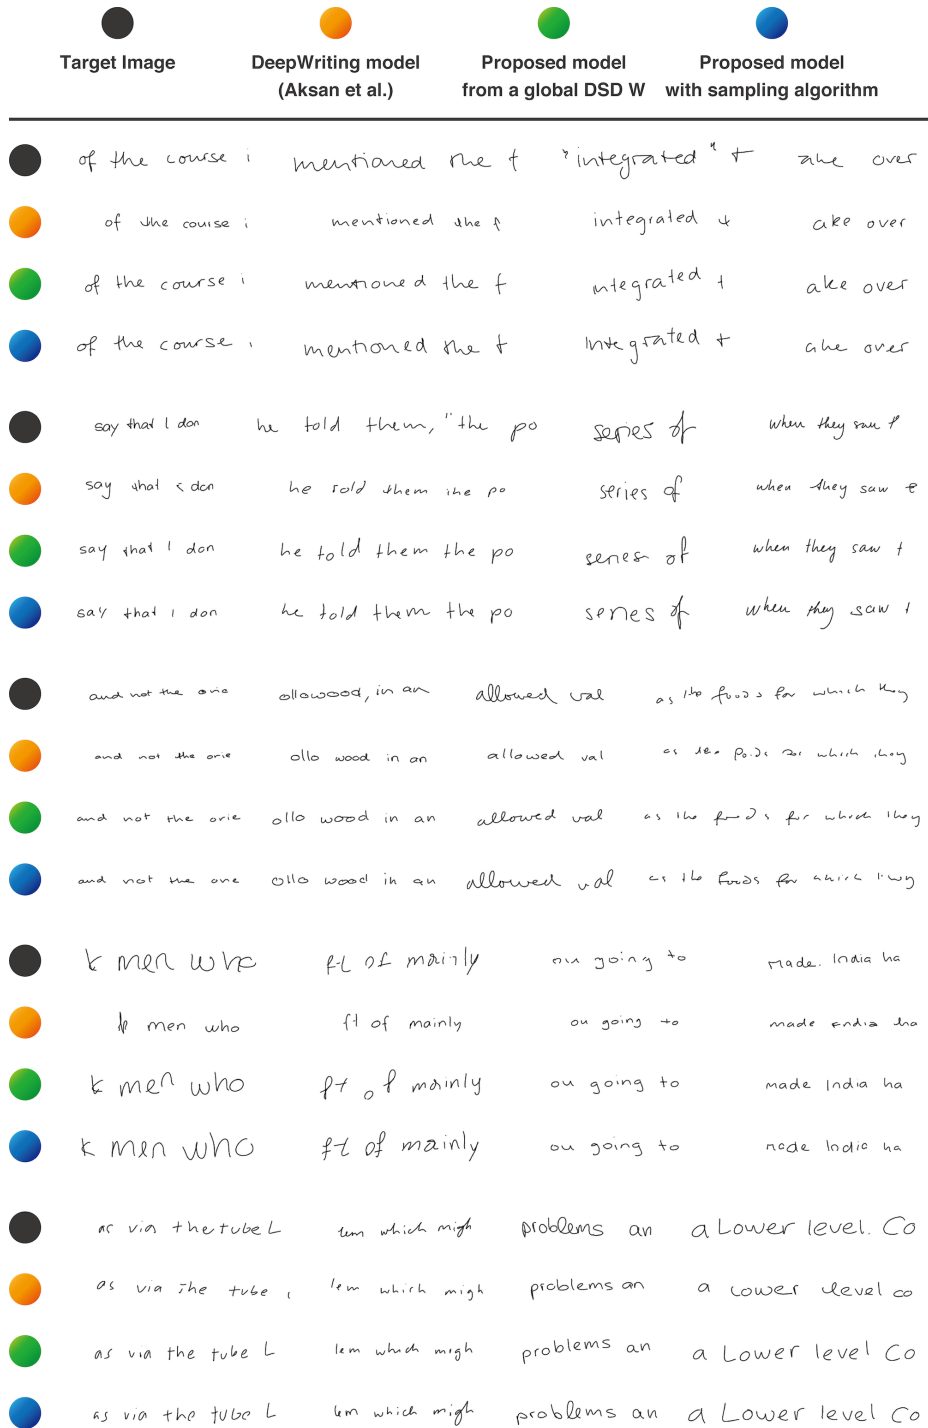 Target Image DeepWriting model Proposed model Proposed model
(Aksan et al.) from a global DSD W with sampling algorithm
of the course i mentioned the f "integrated" t ake over
of the course i mentioned the f integrated t ake over
of the course i mentioned the f integrated t ake over
of the course i mentioned the t Integrated t ake over
say that I don he told them, "the po series of when they saw t
say that I don he told them the po series of when they saw t
say that I don he told them the po series of when they saw t
say that I don he told them the po series of when they saw t
and not the orie ollowood, in an allowed val as the foods for which they
and not the orie ollo wood in an allowed val as which they
and not the orie ollo wood in an allowed val as the foods for which they
and not the orie ollo wood in an allowed val as the foods for which they
k men who ft of mainly ou going to made. India ha
k men who ft of mainly ou going to made India ha
k men who ft of mainly ou going to made India ha
k men who ft of mainly ou going to made India ha
as via the tube L lem which migh problems an a Lower level. Co
as via the tube lem which migh problems an a lower level co
as via the tube L lem which migh problems an a Lower level Co
as via the tube L lem which migh problems an a Lower level Co